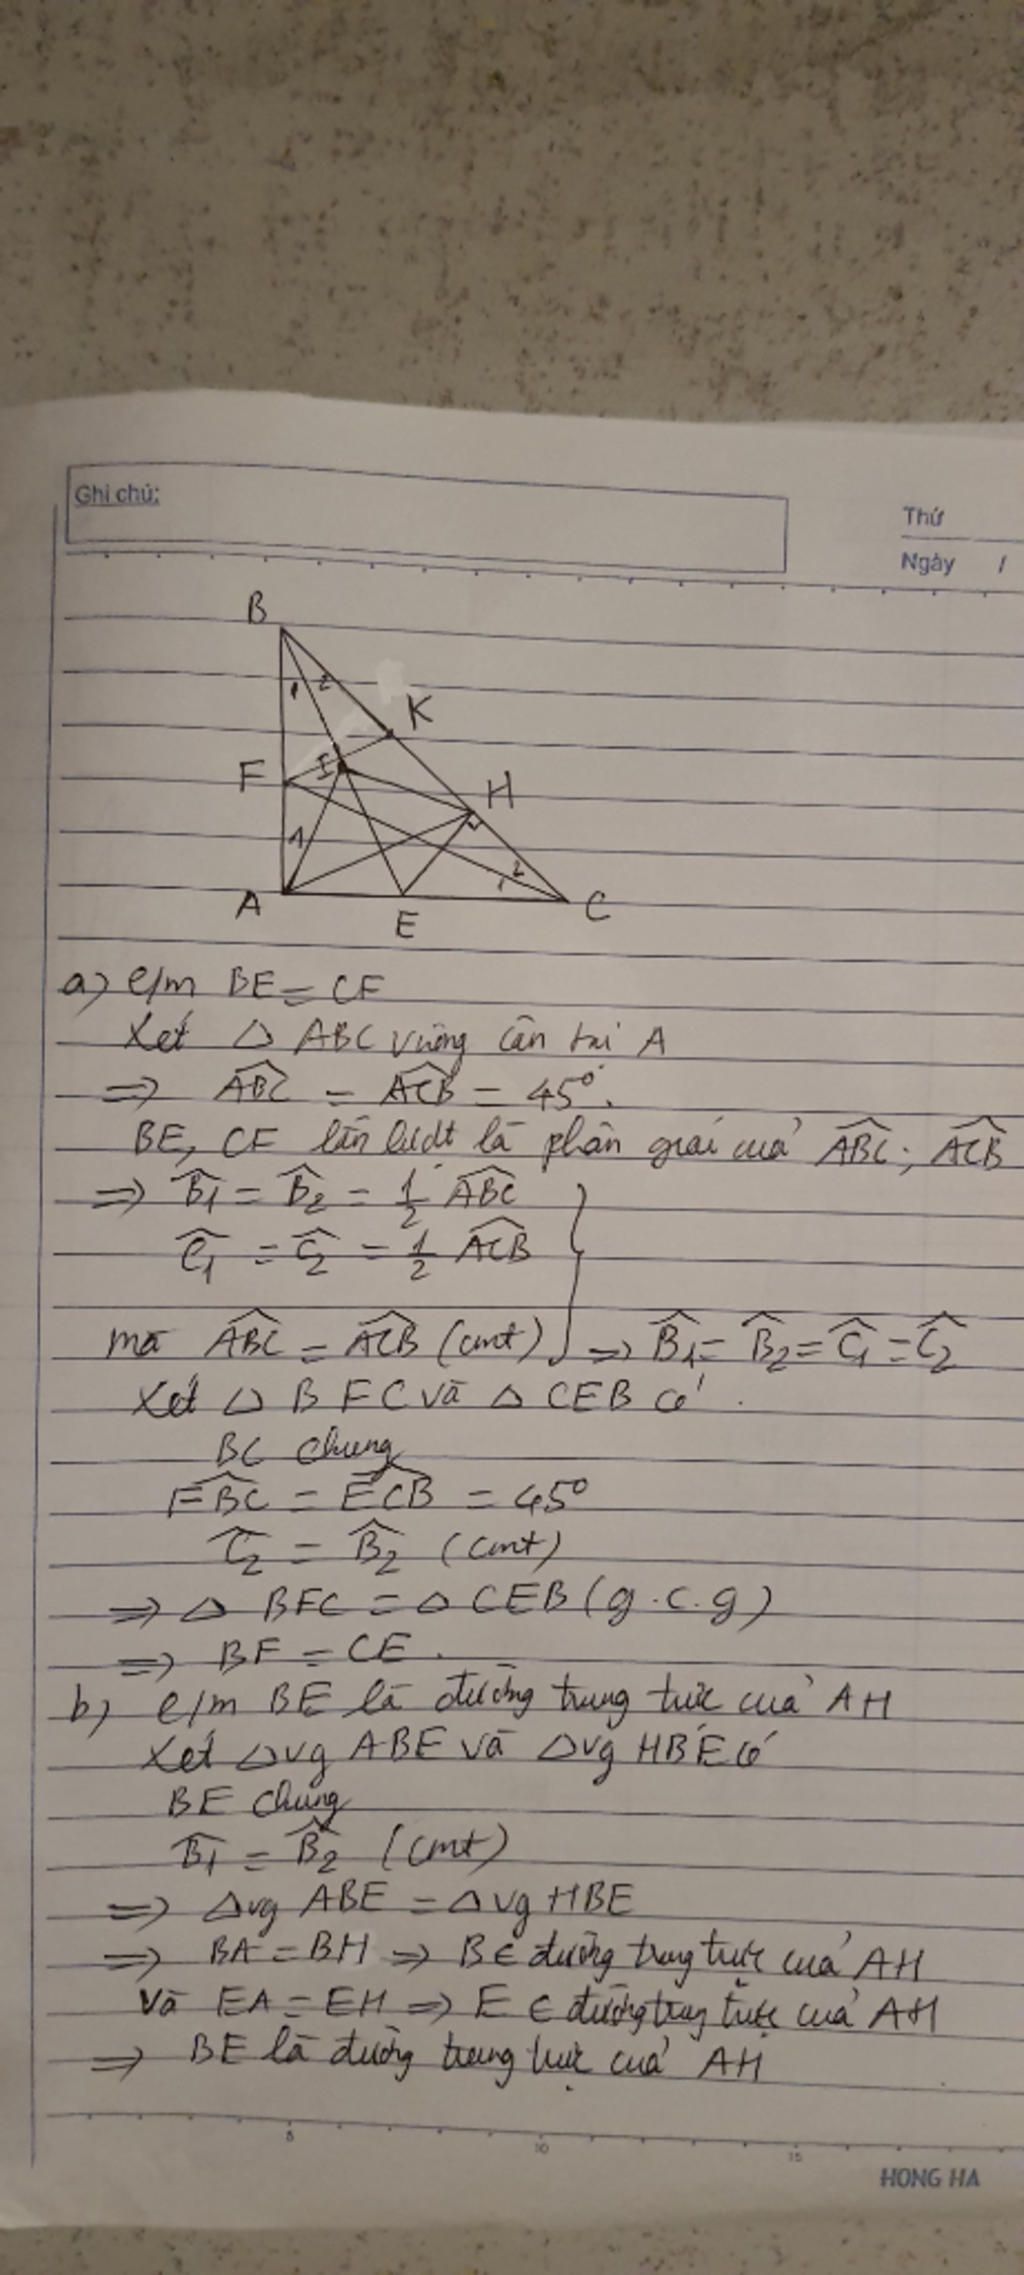 Ghi chú:
Thứ
Ngày /
B
1 2
K
F I
H
1
2
1
A
E
C
a) c/m BE = CF
Xét △ ABC vuông cân tại A
=> ABC = ACB = 45°.
BE, CF lần lượt là phân giác của ABC; ACB
=> B1 = B2 = 1/2 ABC
C1 = C2 = 1/2 ACB
mà ABC = ACB (cmt) => B1 = B2 = C1 = C2
Xét △ BFC và △ CEB có
BC chung
FBC = ECB = 45°
C2 = B2 (cmt)
=> △ BFC = △ CEB (g.c.g)
=> BF = CE.
b) c/m BE là đường trung trực của AH
Xét △vg ABE và △vg HBE có
BE chung
B1 = B2 (cmt)
=> △vg ABE = △vg HBE
=> BA = BH => B ∈ đường trung trực của AH
và EA = EH => E ∈ đường trung trực của AH
=> BE là đường trung trực của AH
5 10 15
HONG HA